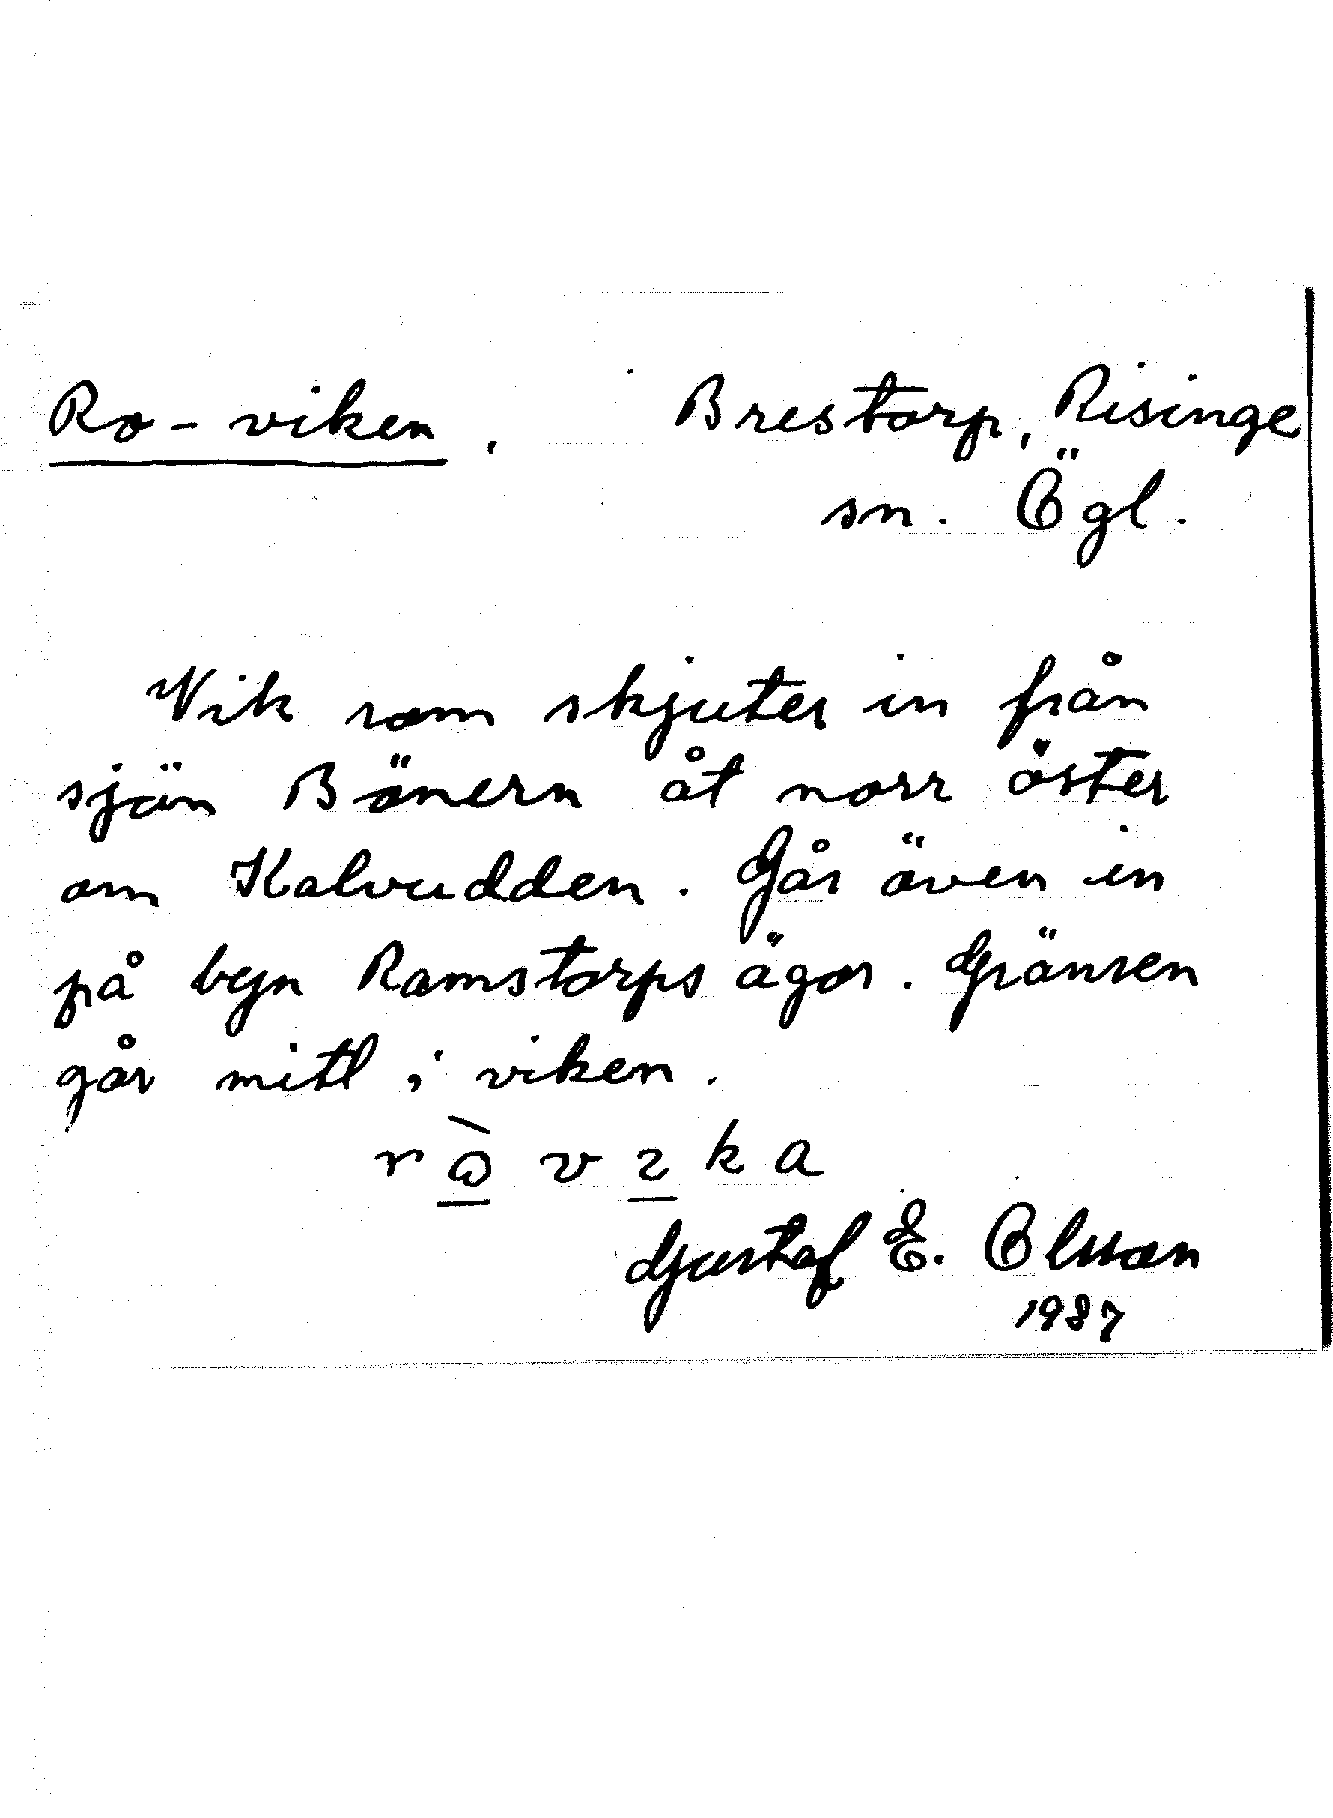 Ro-viken, Brestorp, Risinge
sn. Ögl.
Vik som skjuter in från
sjön Bönern åt norr öster
om Kalvudden. Går även in
på byn Ramstorps ägor. Gränsen
går mitt i viken.
Gustaf E. Olsson
1987